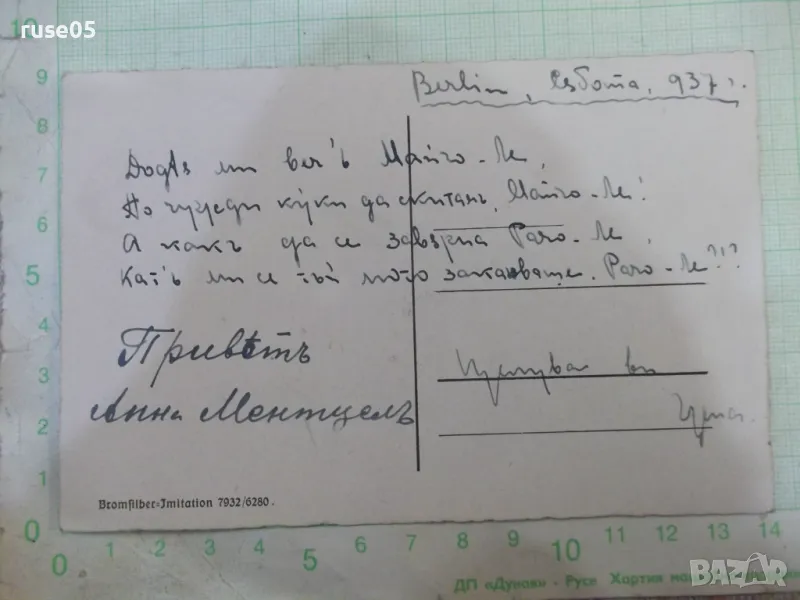 ruse05
Berlin, Събота, 937 г.
ми веч'ъ Майчо-Ле,
По чужди кѫки да скитамъ, Майчо-Ле!
А какъ да се завърна Рачо-Ле,
Кат'ъ ми се тъй много заканваше, Рачо-Ле?!?
Приветъ
Анна Ментцелъ
Целува ви
Bromsilber-Imitation 7932/6280.
10
9
8
7
6
5
4
3
2
1
0
0 1 2 3 4 5 6 7 8 9 10 11 12 13 14
ДП «Дунав» - Русе Хартия
BAZAR